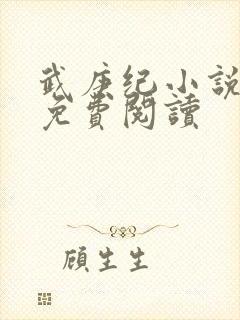 武庚纪小说
免費閱讀
顧生生